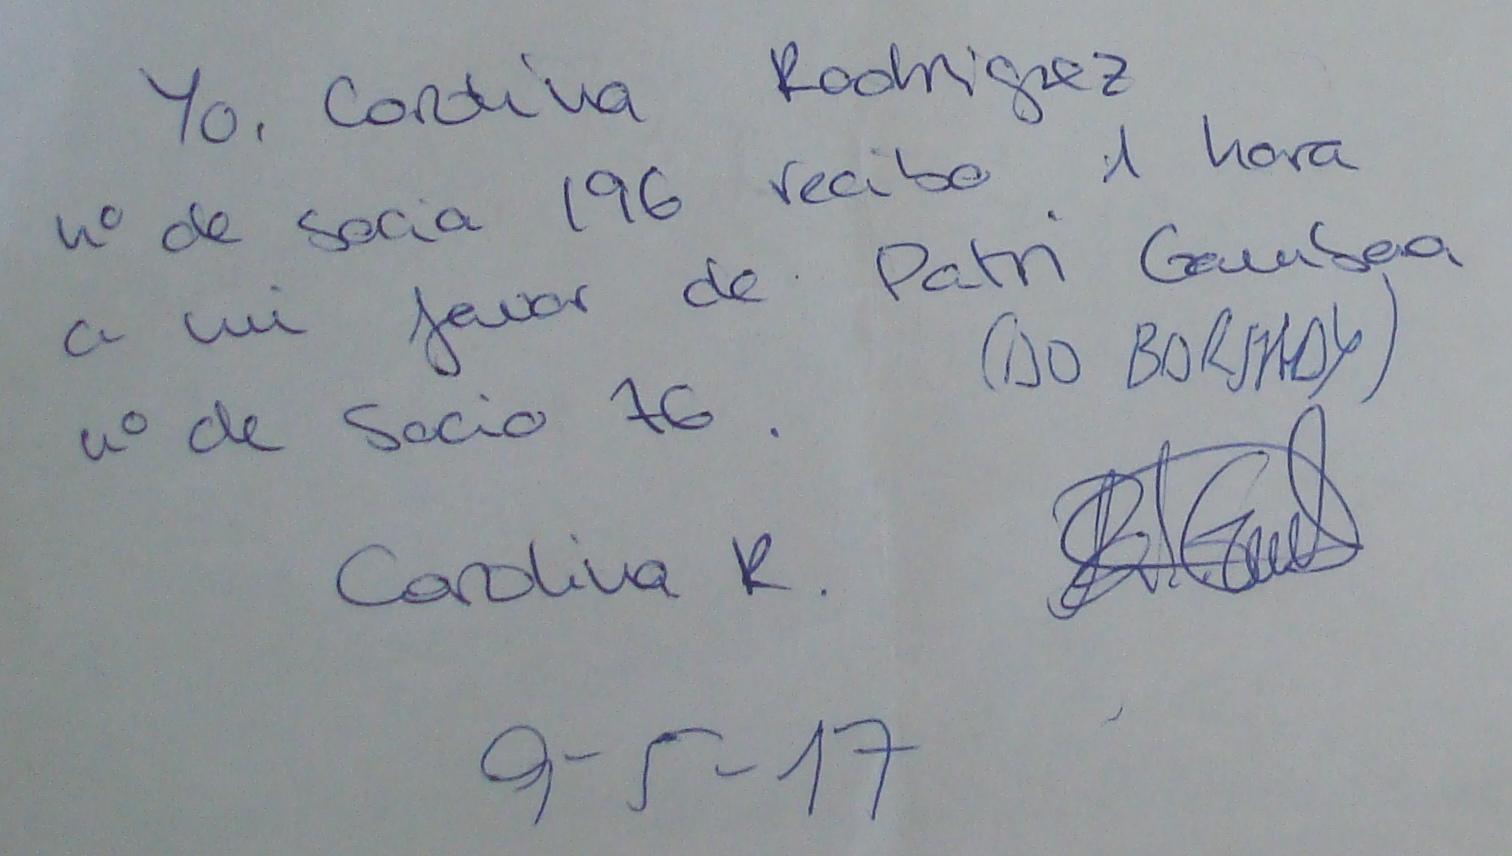 Yo, Carolina Rodriguez
nº de socia 196 recibo 1 hora
a mi favor de Patri Gamboa
nº de socio 76.
Carolina R.
9-5-17